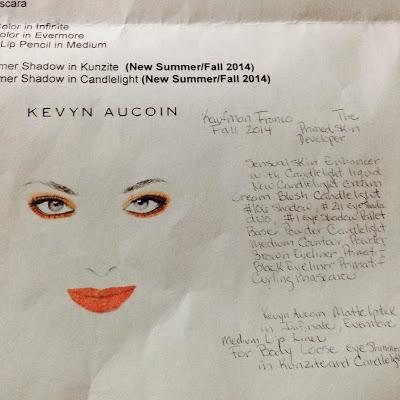 scara
Color in Infinite
Color in Evermore
Lip Pencil in Medium
mer Shadow in Kunzite (New Summer/Fall 2014)
mer Shadow in Candlelight (New Summer/Fall 2014)
KEVYN AUCOIN
Kaufman Franco The
Fall 2014 Primed Skin
Developer
Sensual Skin Enhancer
with Candlelight liquid
New Candlelight Cream
Cream Blush Candlelight
Shadow, # eye Shadow
duo, #1 eye Shadow Pallet
Base Powder Candlelight
Medium Contour Powder
Brown Eyeliner Primatif
Black Eyeliner Primatif
Curling Mascara
Kevyn Aucoin Matte Lipstick
in Infinate, Evermore
Medium Lip Liner
for Body Loose eye Shimmer
in Kunzite and Candlelight